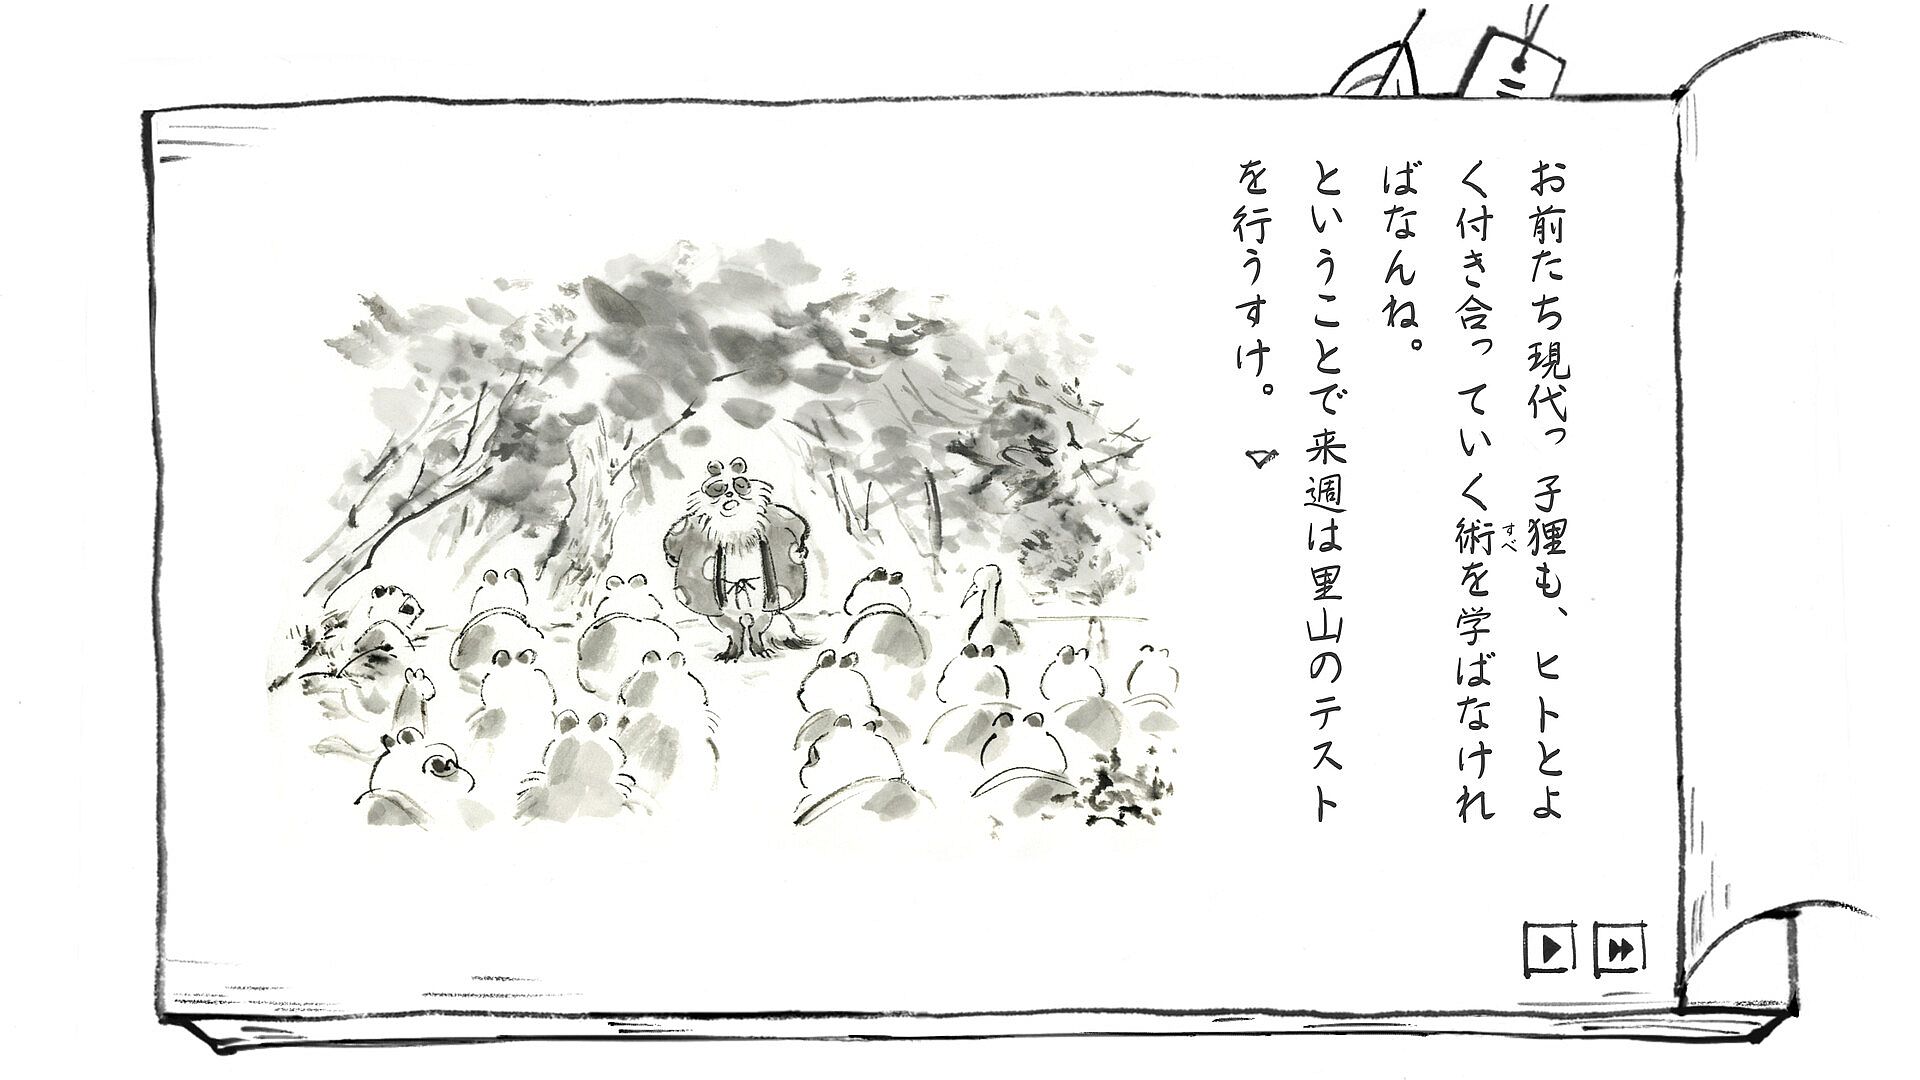 お前たち現代っ子狸も、ヒトとよ
く付き合っていく術を学ばなけれ
すべ
ばなんね。
ということで来週は里山のテスト
を行うすけ。